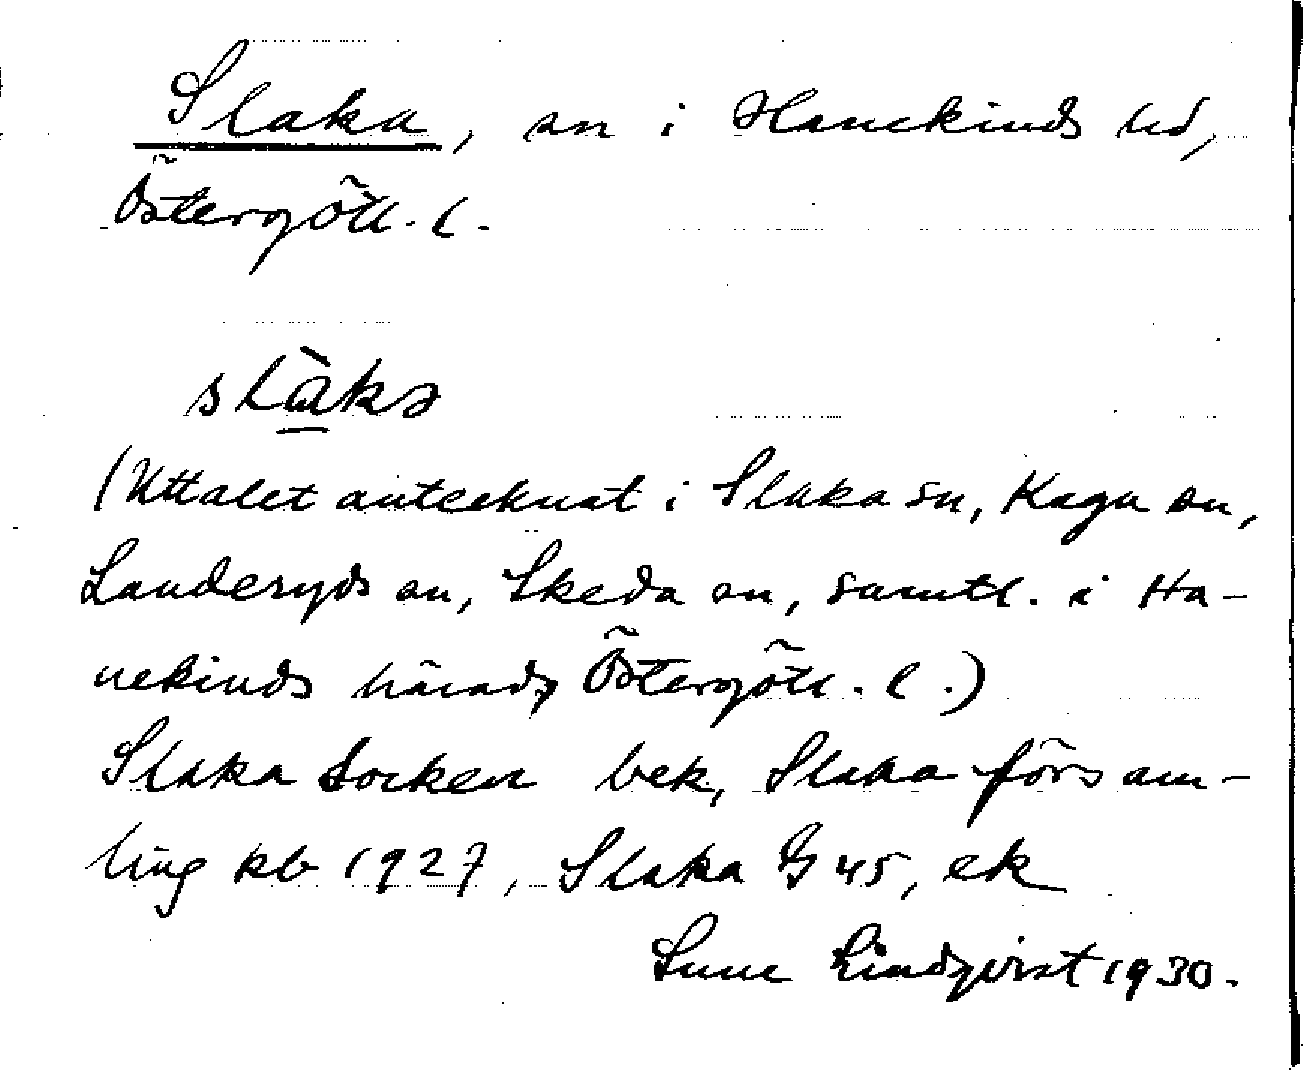 Slaka, sn i Hanekinds hd,
Östergötl. l.
slàkə
(Uttalet antecknat i Slaka sn, Kaga sn,
Landeryds sn, Skeda sn, samtl. i Ha-
nekinds härad, Östergötl. l.)
Slaka socken bek, Slaka försam-
ling kb 1927, Slaka G 45, ek
Sune Lindqvist 1930.